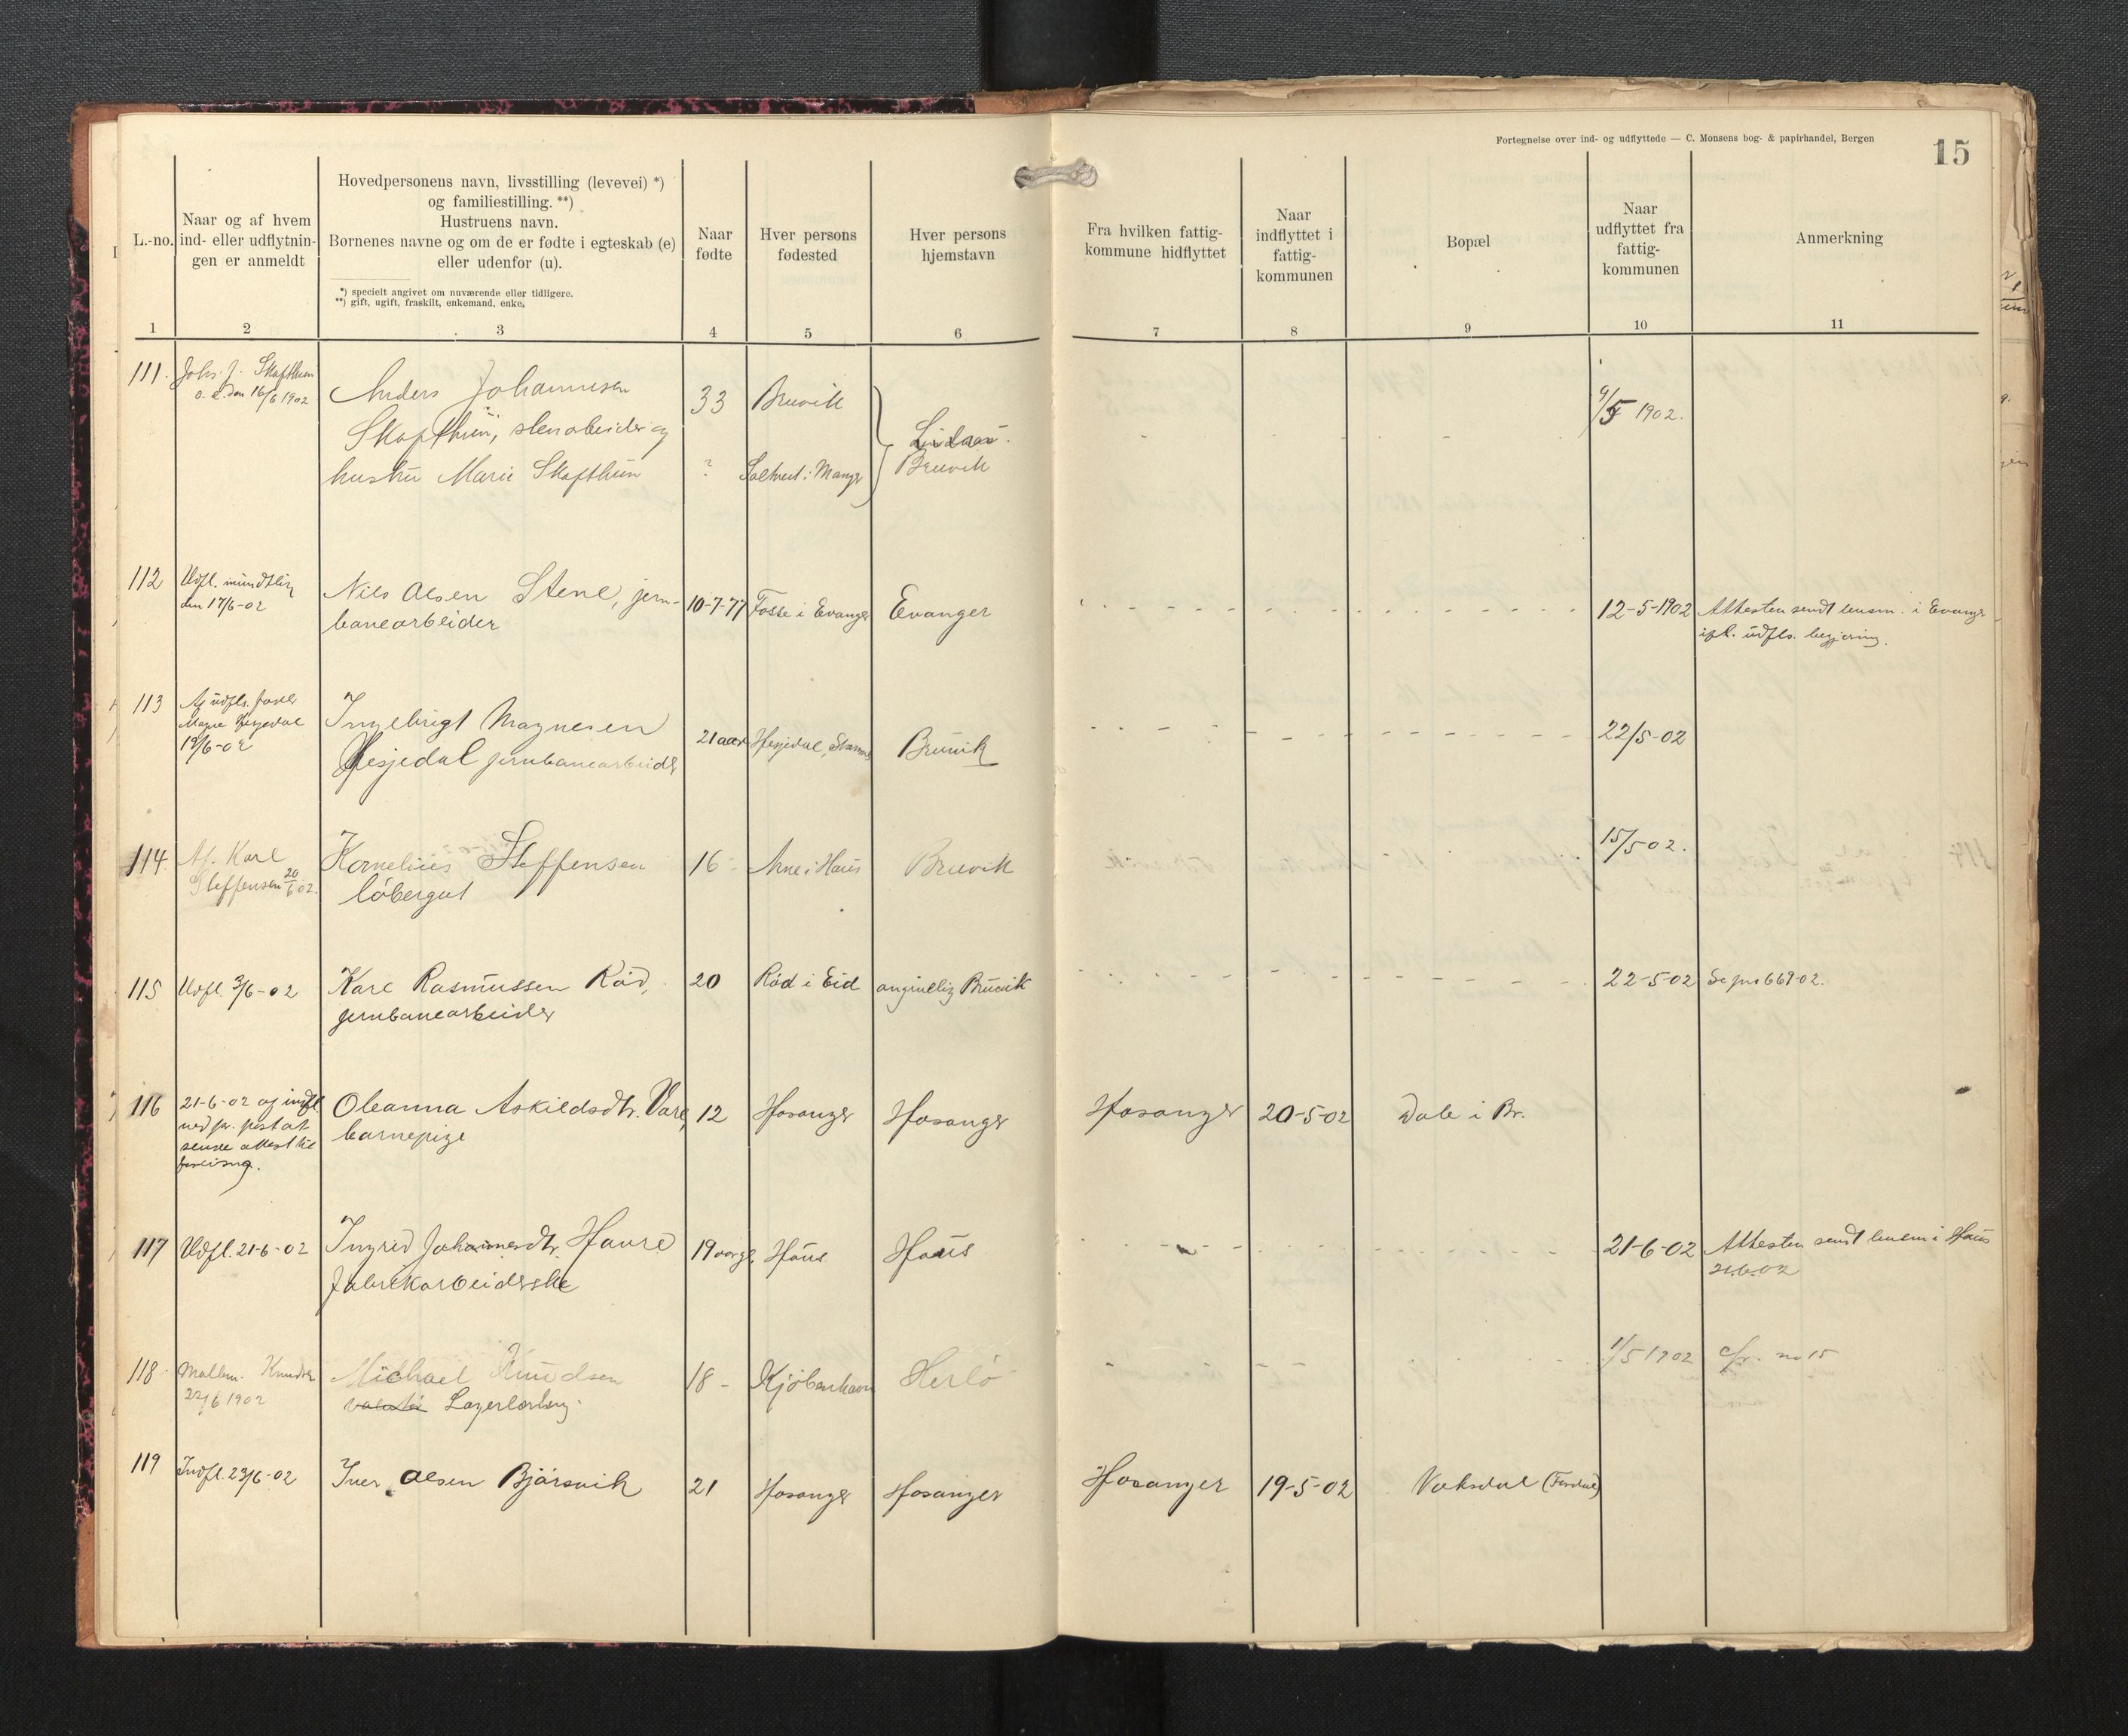 Fortegnelse over ind- og udflyttede — C. Monsens bog- & papirhandel, Bergen
15
L.-no.
Naar og af hvem
ind- eller udflytnin-
gen er anmeldt
Hovedpersonens navn, livsstilling (levevei) *)
og familiestilling. **)
Hustruens navn.
Børnenes navne og om de er fødte i egteskab (e)
eller udenfor (u).
*) specielt angivet om nuværende eller tidligere.
**) gift, ugift, fraskilt, enkemand, enke.
Naar
fødte
Hver persons
fødested
Hver persons
hjemstavn
Fra hvilken fattig-
kommune hidflyttet
Naar
indflyttet i
fattig-
kommunen
Bopæl
Naar
udflyttet fra
fattig-
kommunen
Anmerkning
1 2 3 4 5 6 7 8 9 10 11
111.
Johs. J. Skafthun
o. e. den 16/6 1902
Anders Johannesen
Skafthun, stenarbeider og
hustru Marie Skafthun
33
?
Bruvik
i Manger
Bruvik
1902.
112
Udfl. mundtlig
den 17/6-02
Nils Olsen Stene, jern-
banearbeider
10-7-77
Fosse i Evanger
Evanger
12-5-1902
Attesten sendt lensm. i Evanger
ifl. udfls. begjæring.
113
Af udfls. fader
Magne Hesjedal
19/6-02
Ingebrigt Magnesen
Hesjedal jernbanearbeider
21 aar
Hesjedal, Stamnes
Bruvik
22/5-02
114
Af. Karl
Steffensen 20/6 02.
Kornelius Steffensen
løbergut
16
Arne i Haus
Bruvik
15/5 02.
115
Udfl. 3/6-02
Karl Rasmussen Rød,
jernbanearbeider
20
Rød i Eid
angivelig Bruvik
22-5-02
Se jno 669-02.
116
21-6-02 af indfl.
ved pr. post at
sende attest til
Oleanna Askildsdtr. Vare,
barnepige
12
Hosanger
Hosanger
Hosanger
20-5-02
Dale i Br.
117
Udfl. 21-6-02
Ingrid Johannesdtr. Haure
Fabrikarbeiderske
19 aar gl.
Haus
Haus
21-6-02
Attesten sendt lensm i Haus
21.6.02
118
Knudsen
22/6 1902
Michael Knudsen
Lagerlærling
18 -
Kjøbenhavn
Herlø
1/5 1902
cfr. no 15
119
Indfl. 23/6-02
Iver Olsen Bjørsvik
21
Hosanger
Hosanger
Hosanger
19-5-02
Vaksdal